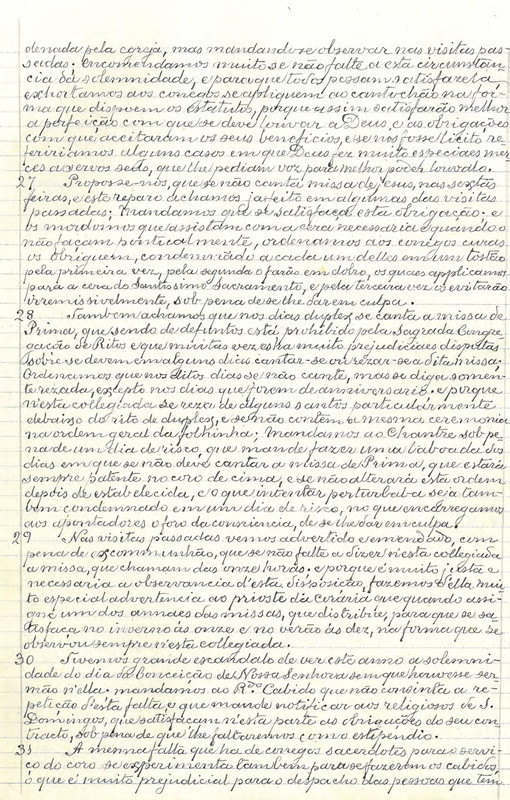 denada pela coroja, mas mandando-se observar nas visitas pas-
sadas. Encomendamos muito se não falte a esta circumstan-
cia da solemnidade, e para que todos possam satisfazel-a
exhortamos aos conegos se appliquem ao cantochão na fór-
ma que dispoem os estatutos, porque assim satisfarão melhor
a perfeição com que se deve louvar a Deus, e as obrigações
com que acceitaram os seus beneficios, e se nos fosse licito re-
feririamos alguns casos em que Deus fez muito especiaes mer-
cês a servos seus, que lhe pediam voz para melhor poder louval-o.
27 Propoz-se-nos, que se não canta missa de Jesus, nas sextas
feiras, e este reparo achamos já feito em algumas das visitas
passadas; mandamos que se satisfaça esta obrigação: e
os mordomos que assistam com a cera necessaria e quando o
não façam pontualmente, ordenamos aos conegos curas
os obriguem, condemnando a cada um delles em um tostão
pela primeira vez, pela segunda o farão em dobro, os quaes applicamos
para a cera do Santissimo Sacramento, e pela terceira vez os evitarão
irremissivelmente, sob pena de se lhe dar em culpa.
28 Tambem achamos que nos dias duplex se canta a missa de
Prima, que sendo de defuntos está prohibido pela Sagrada Congre-
gação de Ritos e que muitas vezes ha muito prejudiciaes disputas
sobre se devem em alguns dias cantar-se ou rezar-se a dita missa.
Ordenamos que nos ditos dias se não cante, mas se diga somen-
te rezada, excepto nos dias que forem de anniversario. e porque
n'esta collegiada se reza de alguns santos particularmente
debaixo do rito de duplex, e se não contêm a mesma ceremonia
na ordem geral da folhinha; mandamos ao Chantre sob pe-
na de um dia de risco, que mande fazer uma taboada dos
dias em que se não deve cantar a missa de Prima, que estará
sempre patente no coro de cima, e se não alterará esta ordem
depois de estabelecida, e o que intentar perturbal-a seja tam-
bem condemnado em um dia de risco, no que encarregamos
aos apontadores o foro da consciencia, de se lhe dar em culpa.
29 Nas visitas passadas vemos advertido e emendado, com
pena de excommunhão, que se não falte a dizer n'esta collegiada
a missa, que chamam das onze horas. e porque é muito justa e
necessaria a observancia d'esta disposição, fazemos d'ella mui-
to especial advertencia ao prioste da cirária que quando assi-
gne um dos annaes das missas, que distribúe, para que se sa-
tisfaça no inverno ás onze e no verão ás dez, na fórma que se
observou sempre n'esta collegiada.
30 Tivemos grande escandalo de ver este anno a solemni-
dade do dia da Conceição de Nossa Senhora sem que houvesse ser-
mão n'ella. mandamos ao R.do Cabido que não consinta a re-
petição d'esta falta, e que mande notificar aos religiosos de S.
Domingos, que satisfaçam n'esta parte as obrigações do seu con-
tracto, sob pena de que lhe faltaremos com o estipendio.
31 A mesma falta que ha de conegos sacerdotes para o servi-
ço do coro se experimenta tambem para se fazerem cabidos,
o que é muito prejudicial para o despacho das pessoas que tem